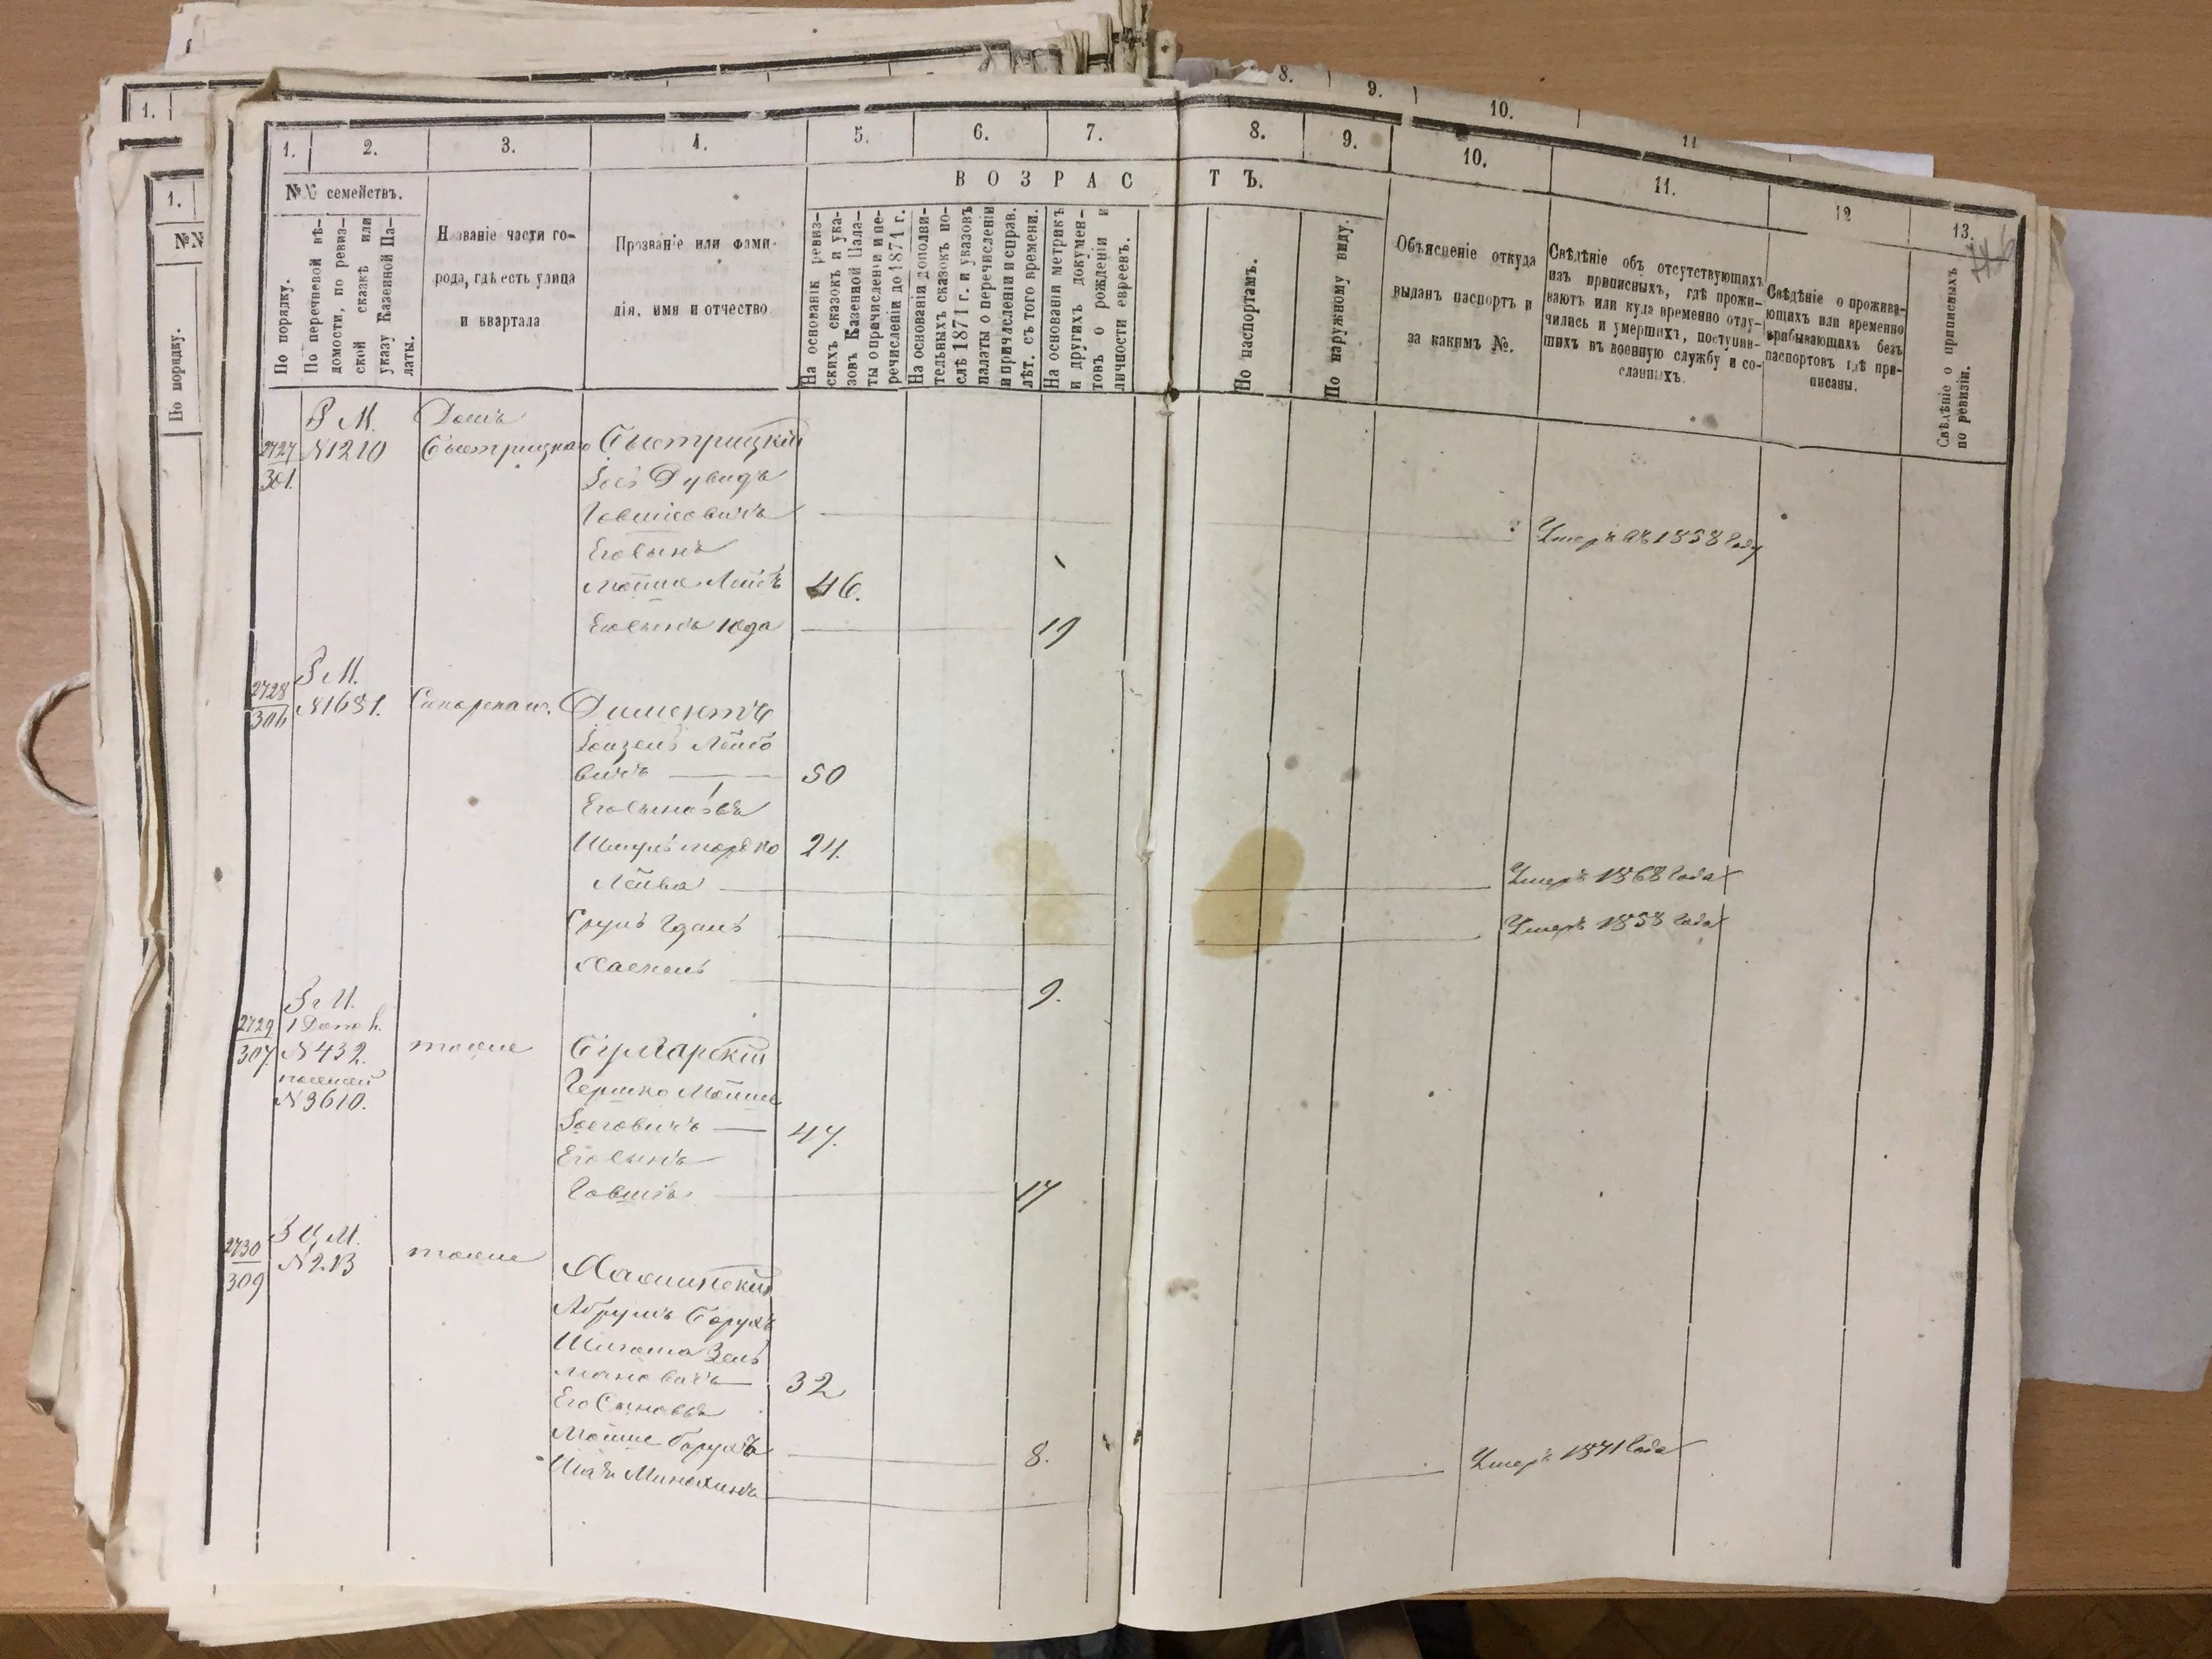 8. 9. 10. 11
1.
1. 2. 3. 4. 5. 6. 7. 8. 9. 10. 11. 12 13.
1.
№№
По порядку.
№№ семействъ.
В О З Р А С Т Ъ.
По порядку.
По перечневой вѣ-
домости, по ревиз-
ской сказкѣ или
указу Казенной Па-
латы.
Названіе части го-
рода, гдѣ есть улица
и квартала
Прозваніе или фами-
лія, имя и отчество
На основаніи ревиз-
скихъ сказокъ и ука-
зовъ Казенной Пала-
ты о причисленіи и пе-
речисленіи до 1871 г.
На основаніи дополни-
тельныхъ сказокъ по-
слѣ 1871 г. и указовъ
палаты о перечисленіи
и причисленіи и справ.
лѣт. съ того времени.
На основаніи метрикъ
и другихъ докумен-
товъ о рожденіи и
личности евреевъ.
По паспортамъ.
По наружному виду.
Объясненіе откуда
выданъ паспортъ и
за какимъ №.
Свѣдѣніе объ отсутствующихъ
изъ приписныхъ, гдѣ прожи-
ваютъ или куда временно отлу-
чились и умершихъ, поступив-
шихъ въ военную службу и со-
сланныхъ.
Свѣдѣніе о прожива-
ющихъ или временно
прибывающихъ безъ
паспортовъ гдѣ при-
писаны.
Свѣдѣніе о приписныхъ
по ревизіи.
Р М. Домъ
2727 №1210 Быстрицкаго Быстрицкій
301.
Дувидъ
Говшіовичъ Умеръ въ 1858 году
Его сынъ
Мошка Лейбъ 46.
Его сынъ Юда 19
Р М.
2728 №1681. Диментъ
306
Лейбо
вичъ 50
Его сыновья
Шмуль Мордко 24.
Лейба Умеръ 1868 года
Сруль Умеръ 1858 года
Хаскель 9.
Р М.
2729 1 Допол.
307 №432. тоже Бургарскій
посемей
№3610. Гершко Мошко
47.
Его сынъ
Говшія 17
2730 №213 тоже
309 Абрумъ Борухъ
Шлиома Зель
мановичъ 32
Его Сыновья
Мошие Борухъ 8.
Умеръ 1871 года